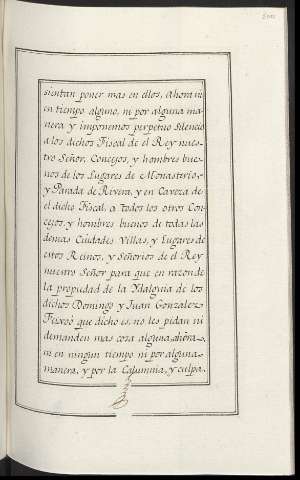 sientan poner mas en ellos, ahora ni
en tiempo alguno, ni por alguna ma
nera, y imponemos perpetuo silencio
a los dichos Fiscal de el Rey nues-
tro Señor, Concejos, y hombres bue
nos de los Lugares de Monasterio,
y Parada de Rivera, y en Caveza de
el dicho Fiscal, a todos los otros Con
cejos, y hombres buenos de todas las
demas Ciudades Villas, y Lugares de
estos Reinos, y Señorios de el Rey
nuestro Señor para que en razon de
la propiedad de la Ydalguia de los
dichos Domingo y Juan Gonzalez
Feixoó que dicho es, no les pidan ni
demanden mas cosa alguna, ahora
ni en ningun tiempo ni por alguna
manera, y por la Calumnia, y culpa